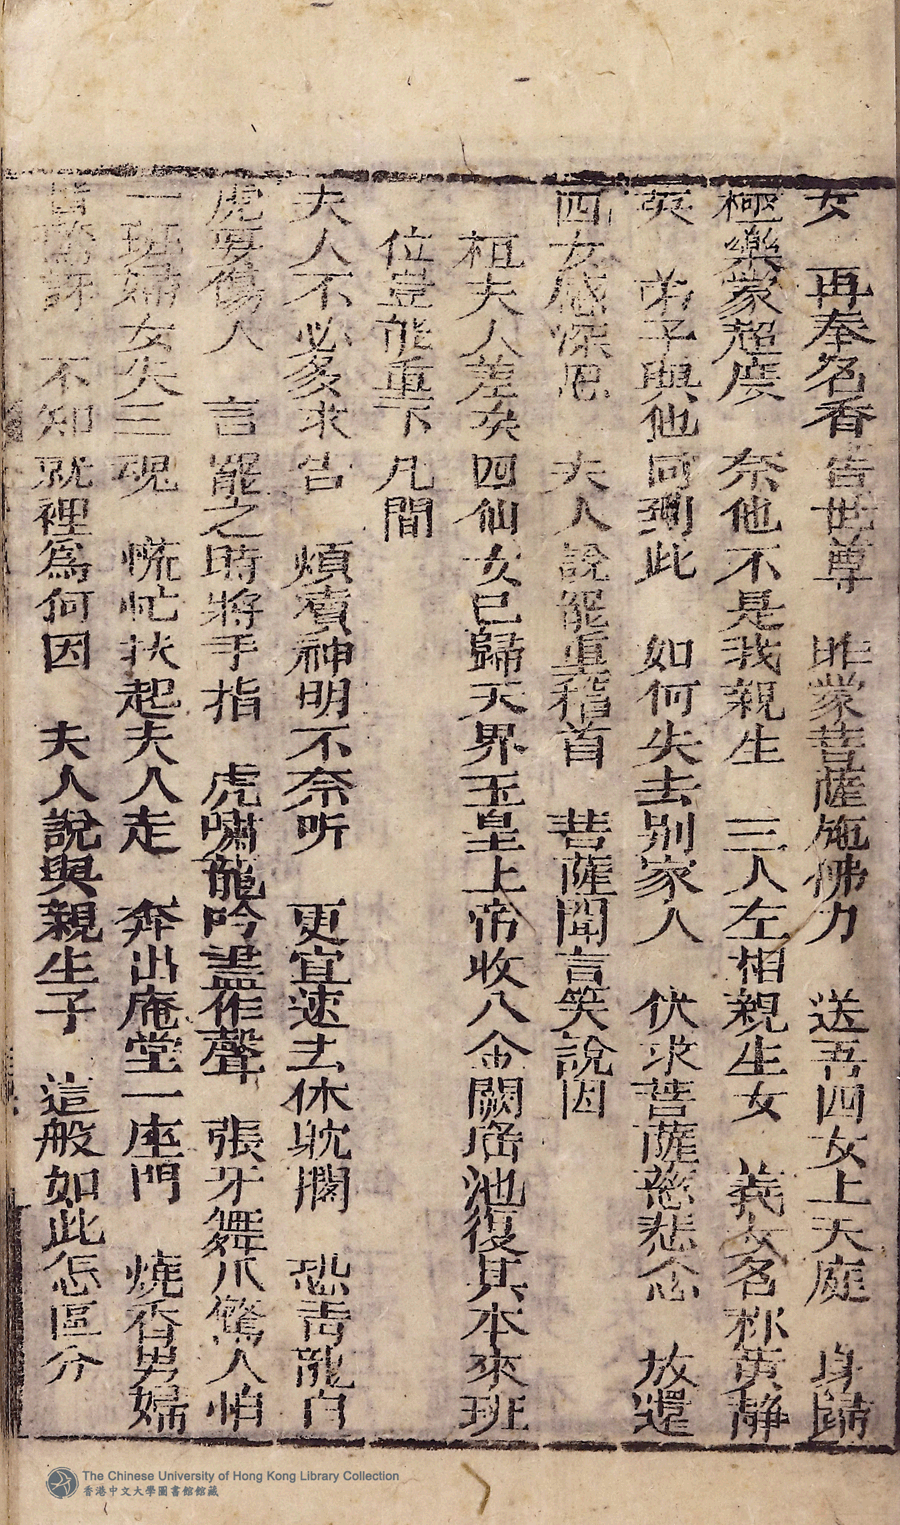 女　再奉名香告世尊　昨蒙菩薩施佛力　送吾四女上天庭　身歸
極樂蒙超度　奈他不是我親生　三人左相親生女　義女名称黄静
英　弟子與他同到此　如何失去别家人　伏求菩薩慈悲念　放還
四女感深恩　夫人說罷重稽首　菩薩聞言笑說因
桓夫人差矣四仙女已歸天界玉皇上帝收入金闕瑤池復其本來班
位豈能重下凡間
夫人不必多求告　煩瀆神明不奈听　更宜速去休躭擱　恐青龍白
虎要傷人　言罷之時將手指　虎嘯龍吟盡作聲　張牙舞爪驚人怕
一班婦女失三魂　慌忙扶起夫人走　奔出庵堂一座門　燒香男婦
皆驚訝　不知就裡為何因　夫人說與親生子　這般如此怎區分
The Chinese University of Hong Kong Library Collection
香港中文大學圖書館館藏